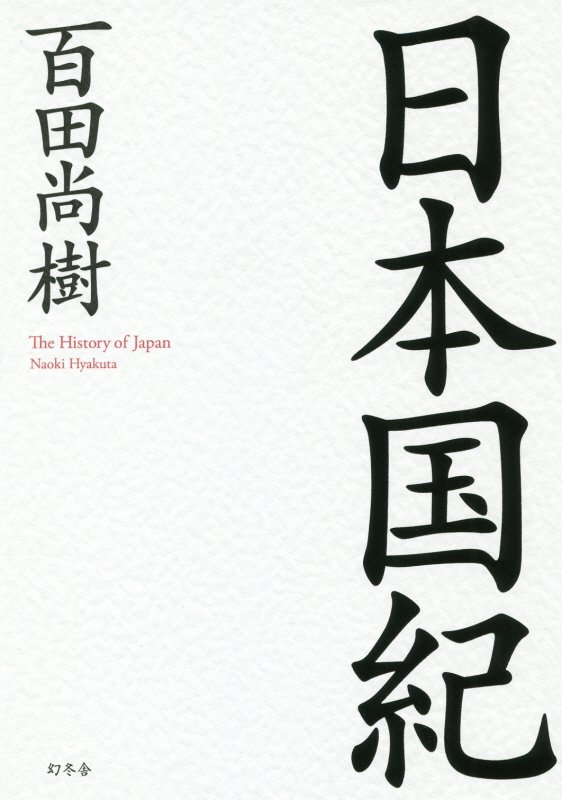 日本国紀
百田尚樹
The History of Japan
Naoki Hyakuta
幻冬舎